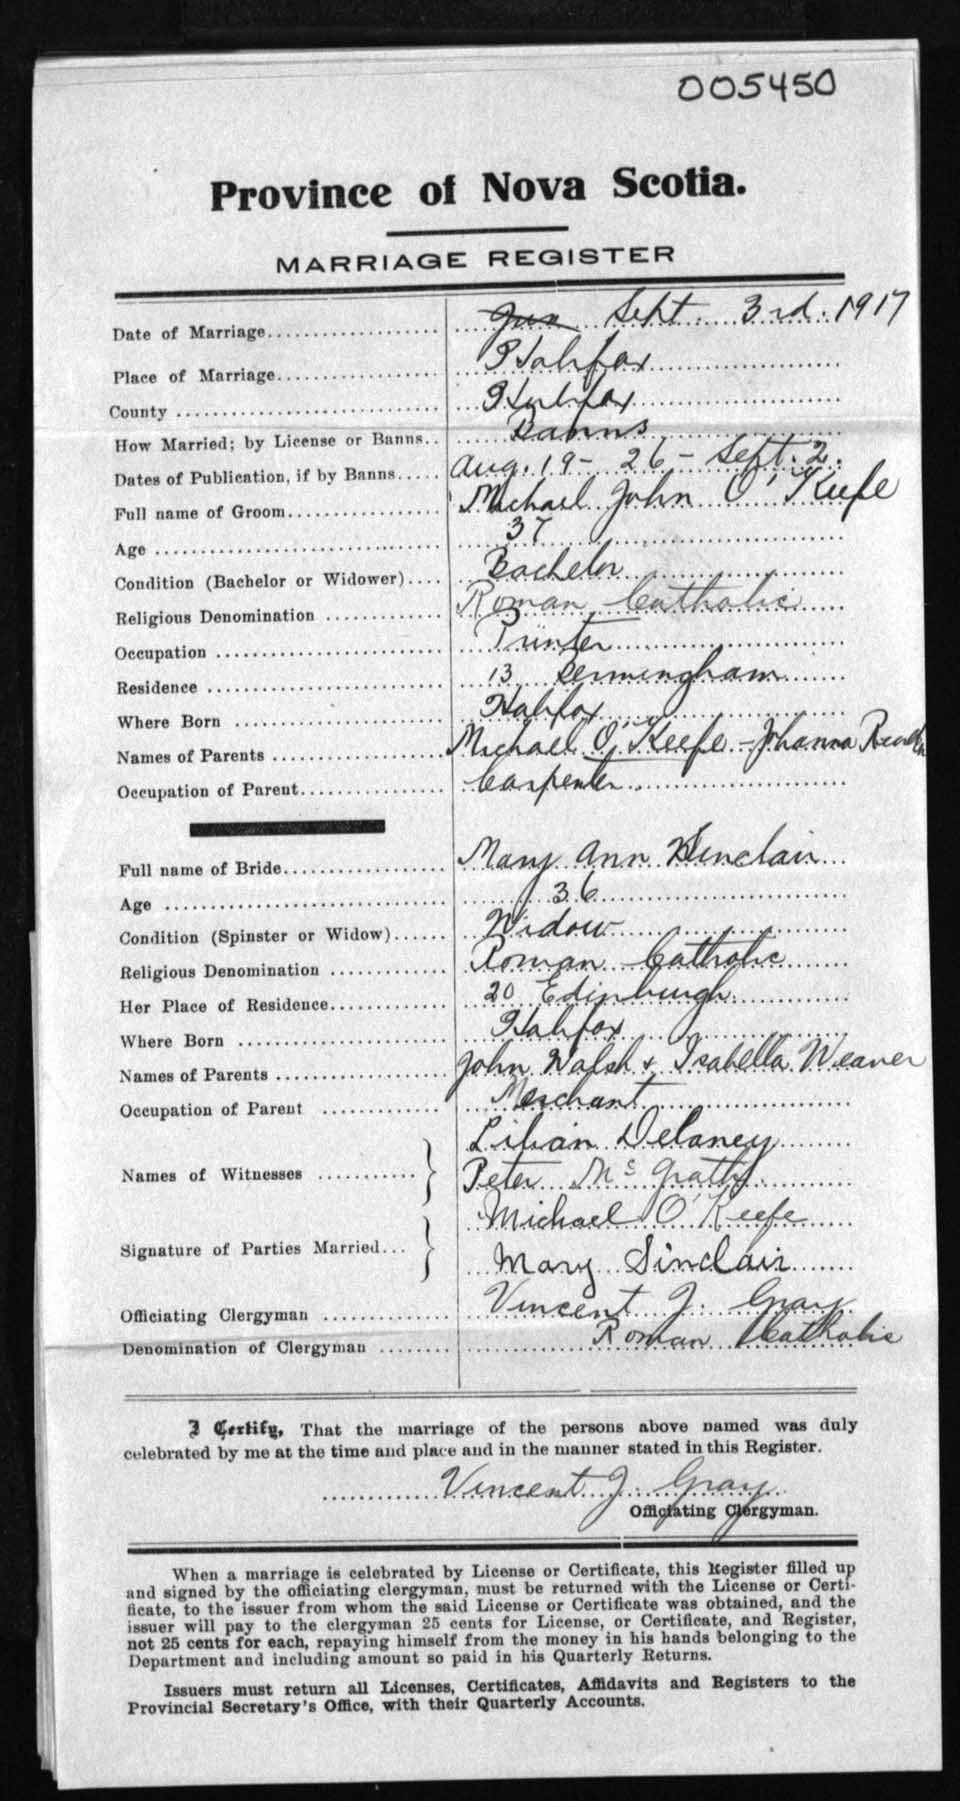 005450
Province of Nova Scotia.
MARRIAGE REGISTER
Date of Marriage Jun Sept. 3rd. 1917
Place of Marriage Halifax
County Halifax
How Married; by License or Banns Banns
Dates of Publication, if by Banns Aug. 19 - 26 - Sept. 2.
Full name of Groom Michael John O'Keefe
Age 37
Condition (Bachelor or Widower) Bachelor
Religious Denomination Roman Catholic
Occupation Printer
Residence 13 Bermingham
Where Born Halifax
Names of Parents Michael O'Keefe - Johanna
Occupation of Parent Carpenter
Full name of Bride Mary Ann Sinclair
Age 36
Condition (Spinster or Widow) Widow
Religious Denomination Roman Catholic
Her Place of Residence 20 Edinburgh
Where Born Halifax
Names of Parents John Walsh & Isabella Weaver
Occupation of Parent Merchant
Lilian Delaney
Names of Witnesses Peter McGrath
Michael O'Keefe
Signature of Parties Married
Mary Sinclair
Officiating Clergyman Vincent J. Gray
Denomination of Clergyman Roman Catholic
I Certify, That the marriage of the persons above named was duly
celebrated by me at the time and place and in the manner stated in this Register.
Vincent J. Gray
Officiating Clergyman.
When a marriage is celebrated by License or Certificate, this Register filled up
and signed by the officiating clergyman, must be returned with the License or Certi-
ficate, to the issuer from whom the said License or Certificate was obtained, and the
issuer will pay to the clergyman 25 cents for License, or Certificate, and Register,
not 25 cents for each, repaying himself from the money in his hands belonging to the
Department and including amount so paid in his Quarterly Returns.
Issuers must return all Licenses, Certificates, Affidavits and Registers to the
Provincial Secretary's Office, with their Quarterly Accounts.